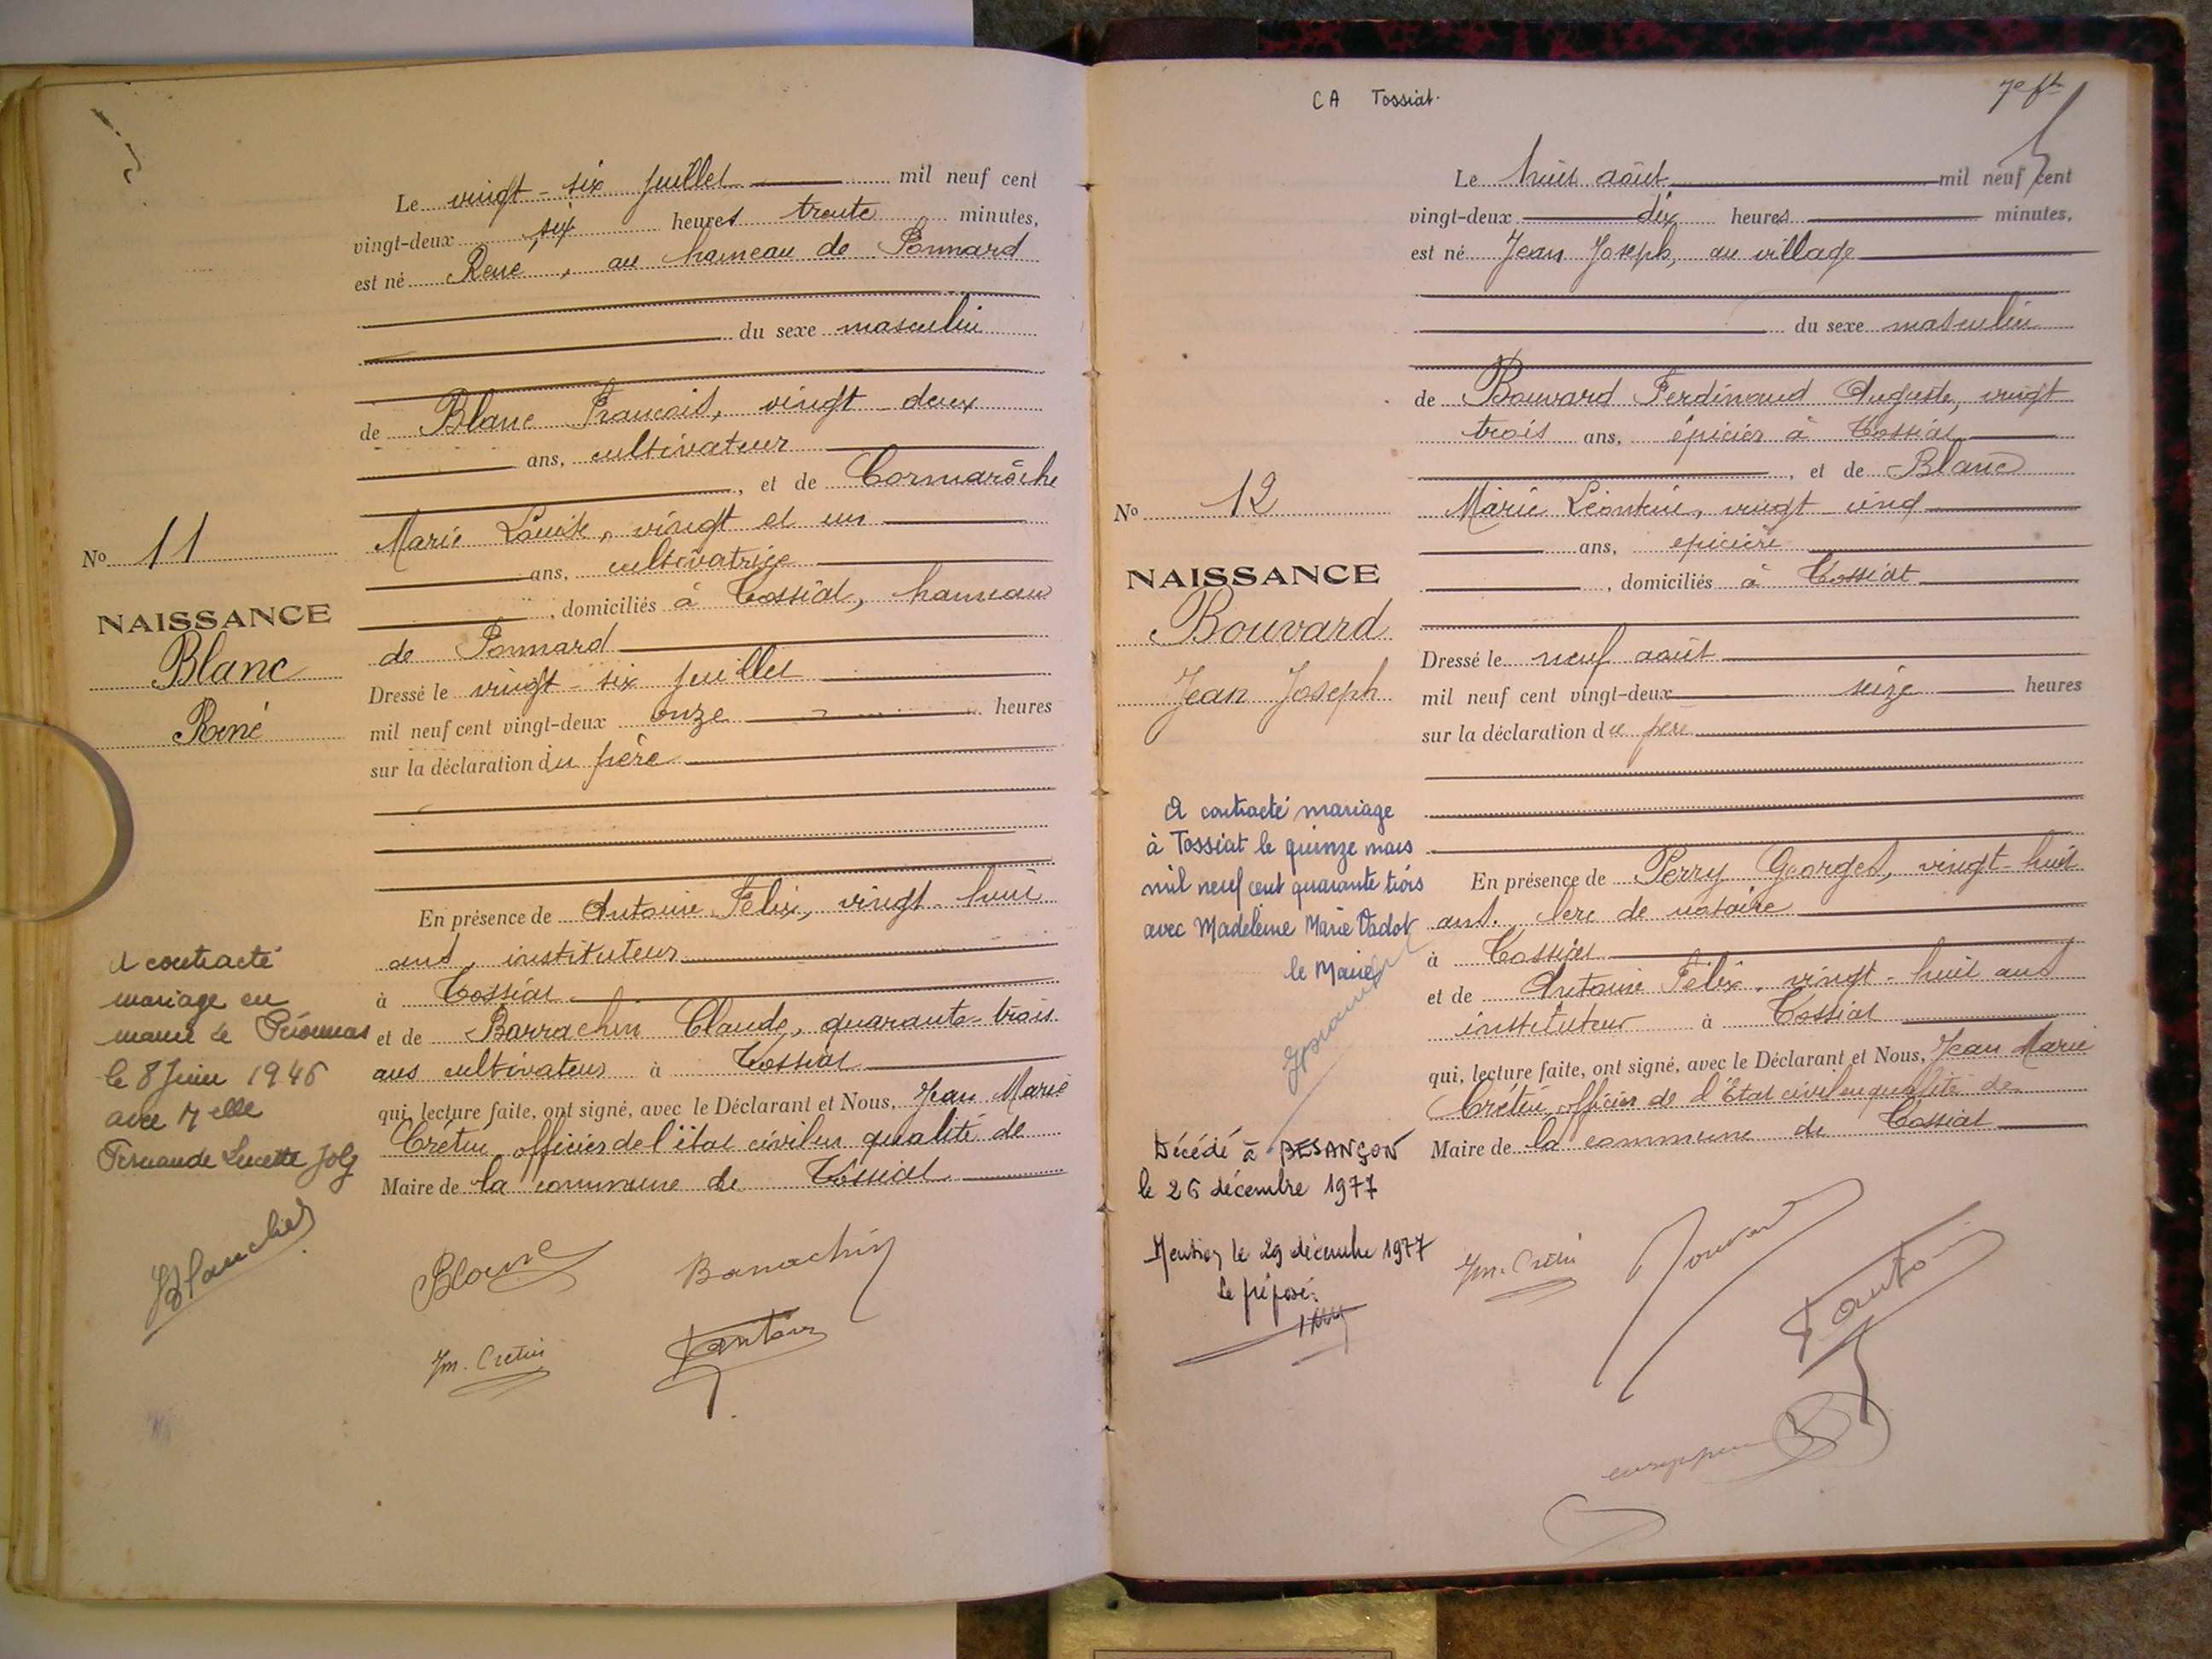 Le vingt-six juillet mil neuf cent
vingt-deux six heures trente minutes,
est né René, au hameau de Ponnard
du sexe masculin
de Blanc François, vingt-deux
ans, cultivateur
, et de Cormarèche
Marie Louise, vingt et un
ans, cultivatrice
, domiciliés à Tossiat, hameau
de Ponnard
Dressé le vingt-six juillet
mil neuf cent vingt-deux onze heures
sur la déclaration du père
En présence de Antoine Félix, vingt-huit
ans, instituteur
à Tossiat
et de Barrachin Claude, quarante-trois
ans cultivateur à Tossiat
qui, lecture faite, ont signé, avec le Déclarant et Nous, Jean Marie
Crétin officier de l'état civil en qualité de
Maire de la commune de Tossiat
No 11
NAISSANCE
Blanc
René
A contracté
mariage en
mairie de Péronnas
le 8 Juin 1946
avec Melle
Fernande Lucette Joly
Blanc
Barrachin
Jm. Cretin
Fantoine
CA Tossiat.
7e ft
Le huit août mil neuf cent
vingt-deux dix heures minutes,
est né Jean Joseph, au village
du sexe masculin
de Bouvard Ferdinand Auguste, vingt
trois ans, épicier à Tossiat
, et de Blanc
Marie Léontine, vingt-cinq
ans, épicière
, domiciliés à Tossiat
Dressé le neuf août
mil neuf cent vingt-deux seize heures
sur la déclaration du père
En présence de Perry Georges, vingt-huit
ans, clerc de notaire
à Tossiat
et de Antoine Félix, vingt-huit ans
instituteur à Tossiat
qui, lecture faite, ont signé, avec le Déclarant et Nous, Jean Marie
Crétin, officier de l'Etat civil en qualité de
Maire de la commune de Tossiat
No 12
NAISSANCE
Bouvard
Jean Joseph
A contracté mariage
à Tossiat le quinze mars
mil neuf cent quarante trois
avec Madeleine Marie Vadot
le Maire
Décédé à BESANÇON
le 26 décembre 1977
Mention le 29 décembre 1977
Le préposé:
Jm. Cretin
Bouvard
Fantoine